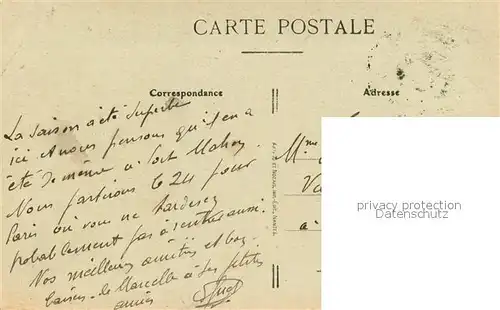 CARTE POSTALE
Correspondance
Adresse
La saison a été superbe
ici et nous pensons qu'il en a
été de même à Fort Mahon.
Nous partirons le 24 pour
Paris où vous ne tarderez
probablement pas à rentrer aussi.
Nos meilleures amitiés et bons
baisers de Marcelle à ses petites
amies
Mme
Va
à
privacy protection